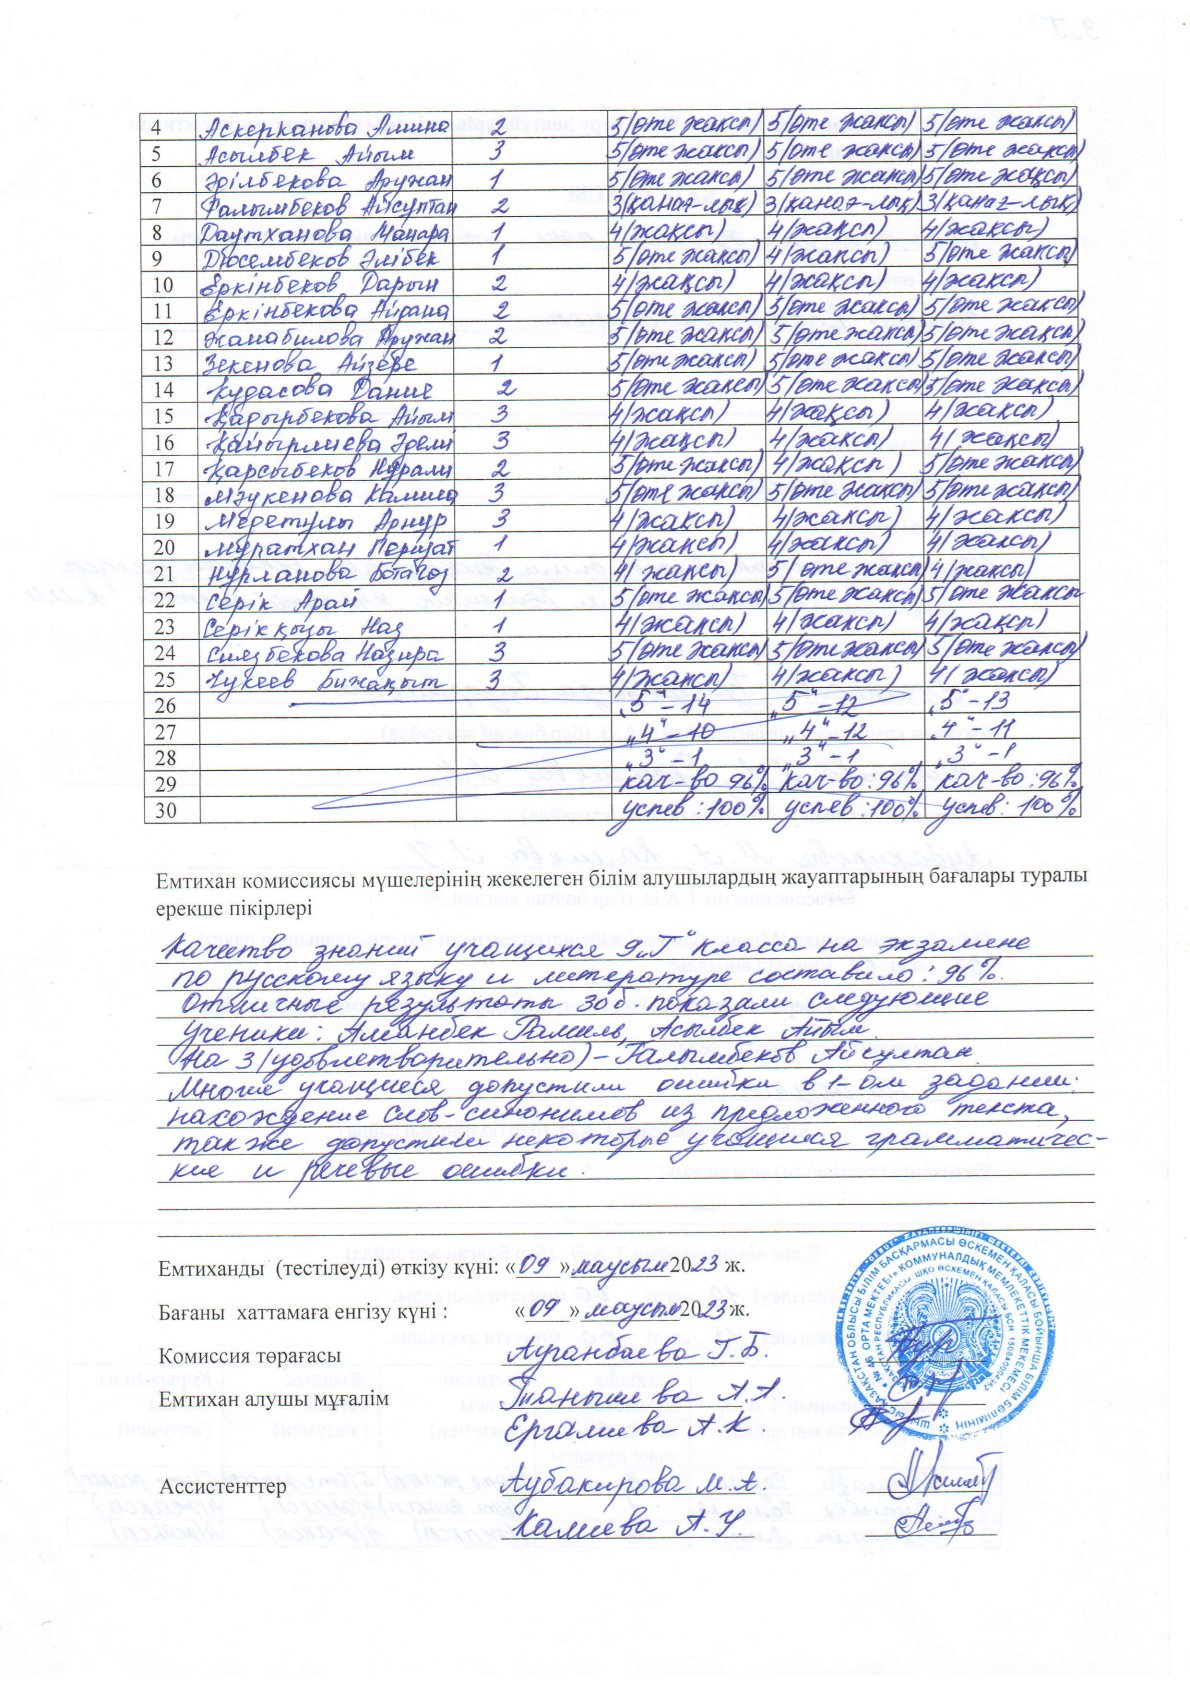 4 Аскерканова Амина 2 5/өте жақсы) 5/өте жақсы) 5/өте жақсы)
5 Асылбек Айым 3 5/өте жақсы) 5/өте жақсы) 5/өте жақсы)
6 Әділбекова Аружан 1 5/өте жақсы) 5/өте жақсы) 5/өте жақсы)
7 Ғалымбеков Айсұлтан 2 3(қанағ-лық) 3(қанағ-лық) 3(қанағ-лық)
8 Даутханова Манара 1 4/жақсы) 4/жақсы) 4/жақсы)
9 Дюсембеков Әлібек 1 5/өте жақсы) 4/жақсы) 5/өте жақсы)
10 Еркінбеков Дарын 2 4/жақсы) 4/жақсы) 4/жақсы)
11 Еркінбекова Айдана 2 5/өте жақсы) 5/өте жақсы) 5/өте жақсы)
12 Жанабилова Аружан 2 5/өте жақсы) 5/өте жақсы) 5/өте жақсы)
13 Зекенова Айзере 1 5/өте жақсы) 5/өте жақсы) 5/өте жақсы)
14 Кудасова Дание 2 5/өте жақсы) 5/өте жақсы) 5/өте жақсы)
15 Қадырбекова Айым 3 4/жақсы) 4/жақсы) 4/жақсы)
16 Қайырлиева Әдемі 3 4/жақсы) 4/жақсы) 4/жақсы)
17 Қарсыбеков Нұрали 2 5/өте жақсы) 4/жақсы) 5/өте жақсы)
18 Мәукенова Камила 3 5/өте жақсы) 5/өте жақсы) 5/өте жақсы)
19 Медетұлы Арнұр 3 4/жақсы) 4/жақсы) 4/жақсы)
20 Мұратхан Перизат 1 4/жақсы) 4/жақсы) 4/жақсы)
21 Нұрланова Ботагоз 2 4/жақсы) 5/өте жақсы) 4/жақсы)
22 Серік Арай 1 5/өте жақсы) 5/өте жақсы) 5/өте жақсы
23 Серікқызы Наз 1 4/жақсы) 4/жақсы) 4/жақсы)
24 Сиязбекова Назира 3 5/өте жақсы) 5/өте жақсы) 5/өте жақсы)
25 Чукеев Бижақыт 3 4/жақсы) 4/жақсы) 4/жақсы)
26 „5“-14 „5“-12 „5“-13
27 „4“-10 „4“-12 „4“-11
28 „3“-1 „3“-1 „3“-1
29 кач-во 96% кач-во: 96% кач-во: 96%
30 успев: 100% успев: 100% успев: 100%
Емтихан комиссиясы мүшелерінің жекелеген білім алушылардың жауаптарының бағалары туралы
ерекше пікірлері
Качество знаний учащихся 9„Г“ класса на экзамене
по русскому языку и литературе составило: 96%.
Отличные результаты 30б. показали следующие
ученики: Аманбек Рамиль, Асылбек Айым.
На 3/удовлетворительно)-Ғалымбеков Айсұлтан.
Многие учащиеся допустили ошибки в 1-ом задании:
нахождение слов-синонимов из предложенного текста,
также допустили некоторые учащиеся грамматичес-
кие и речевые ошибки.
Емтиханды (тестілеуді) өткізу күні: «09» маусым 2023 ж.
Бағаны хаттамаға енгізу күні : «09» маусым 2023 ж.
Комиссия төрағасы Ауганбаева Г.Б.
Емтихан алушы мұғалім Танышева А.А.
Ергалиева А.К.
Ассистенттер Аубакирова М.А.
Калиева А.У